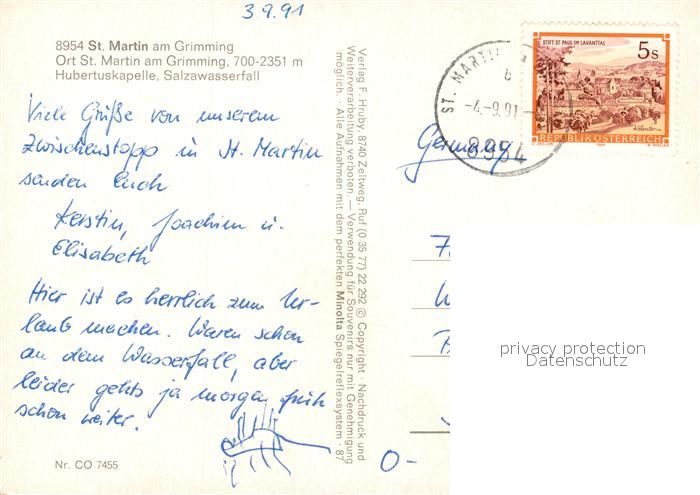 3.9.91
8954 St. Martin am Grimming
Ort St. Martin am Grimming, 700-2351 m
Hubertuskapelle, Salzawasserfall
Viele Grüße von unserem
Zwischenstopp in St. Martin
senden Euch
Kerstin, Joachim u.
Elisabeth
Hier ist es herrlich zum Ur-
laub machen. Waren schon
an dem Wasserfall, aber
leider gehts ja morgen früh
schon weiter.
Nr. CO 7455
Verlag F. Hruby, 8740 Zeltweg, Ruf (0 35 77) 22 292 © Copyright · Nachdruck und
Weiterverarbeitung verboten. — Verwendung für Souvenirs nur mit Genehmigung
möglich. · Alle Aufnahmen mit dem perfekten Minolta Spiegelreflexsystem · 87
ST. MARTIN
b
-4.-9.91-
8954
STIFT ST. PAUL IM LAVANTTAL
5 S
REPUBLIK ÖSTERREICH
Germany
O-
privacy protection
Datenschutz